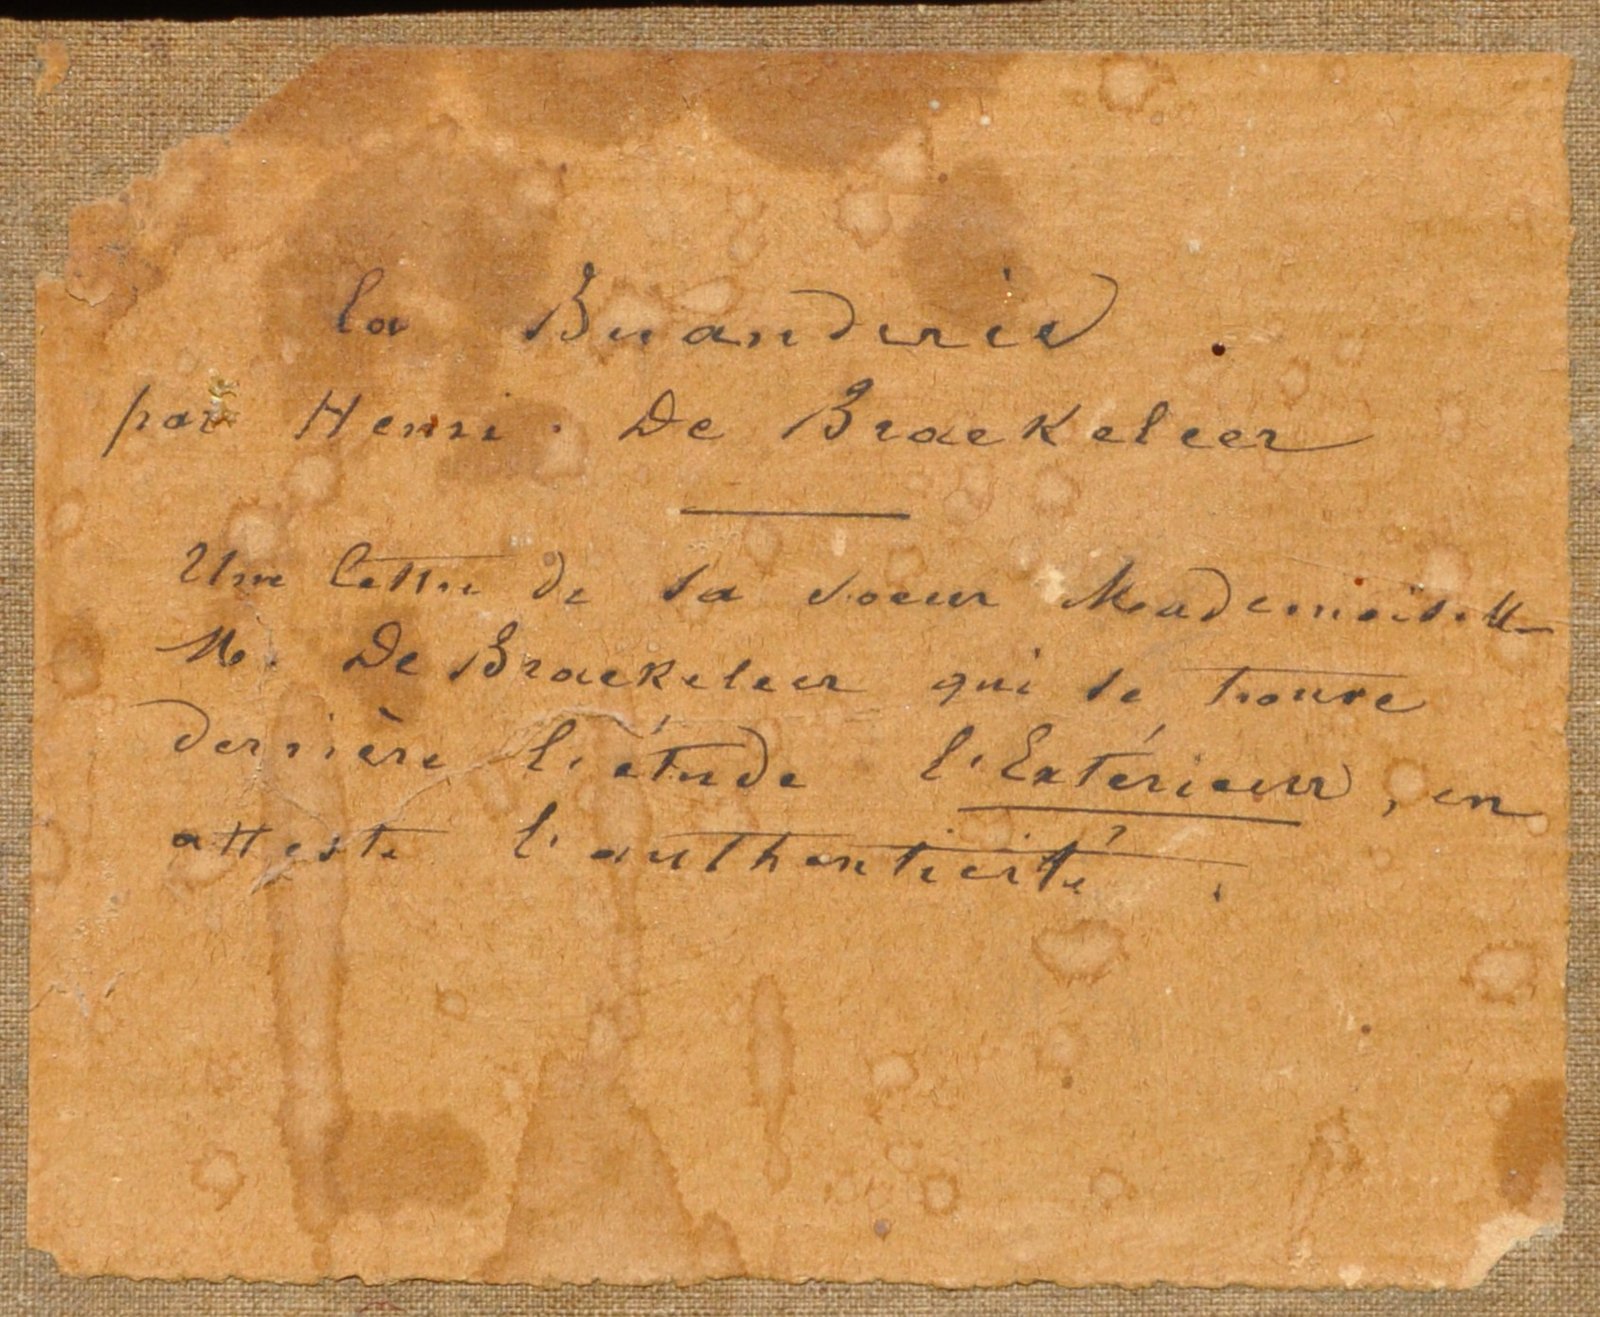 la Buanderie
par Henri De Braekeleer
Une lettre de sa soeur Mademoiselle
M. De Braekeleer qui se trouve
derrière l'étude l'Extérieur, en
atteste l'authenticité.